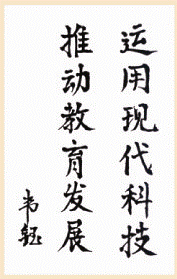 运用现代科技
推动教育发展
韦钰